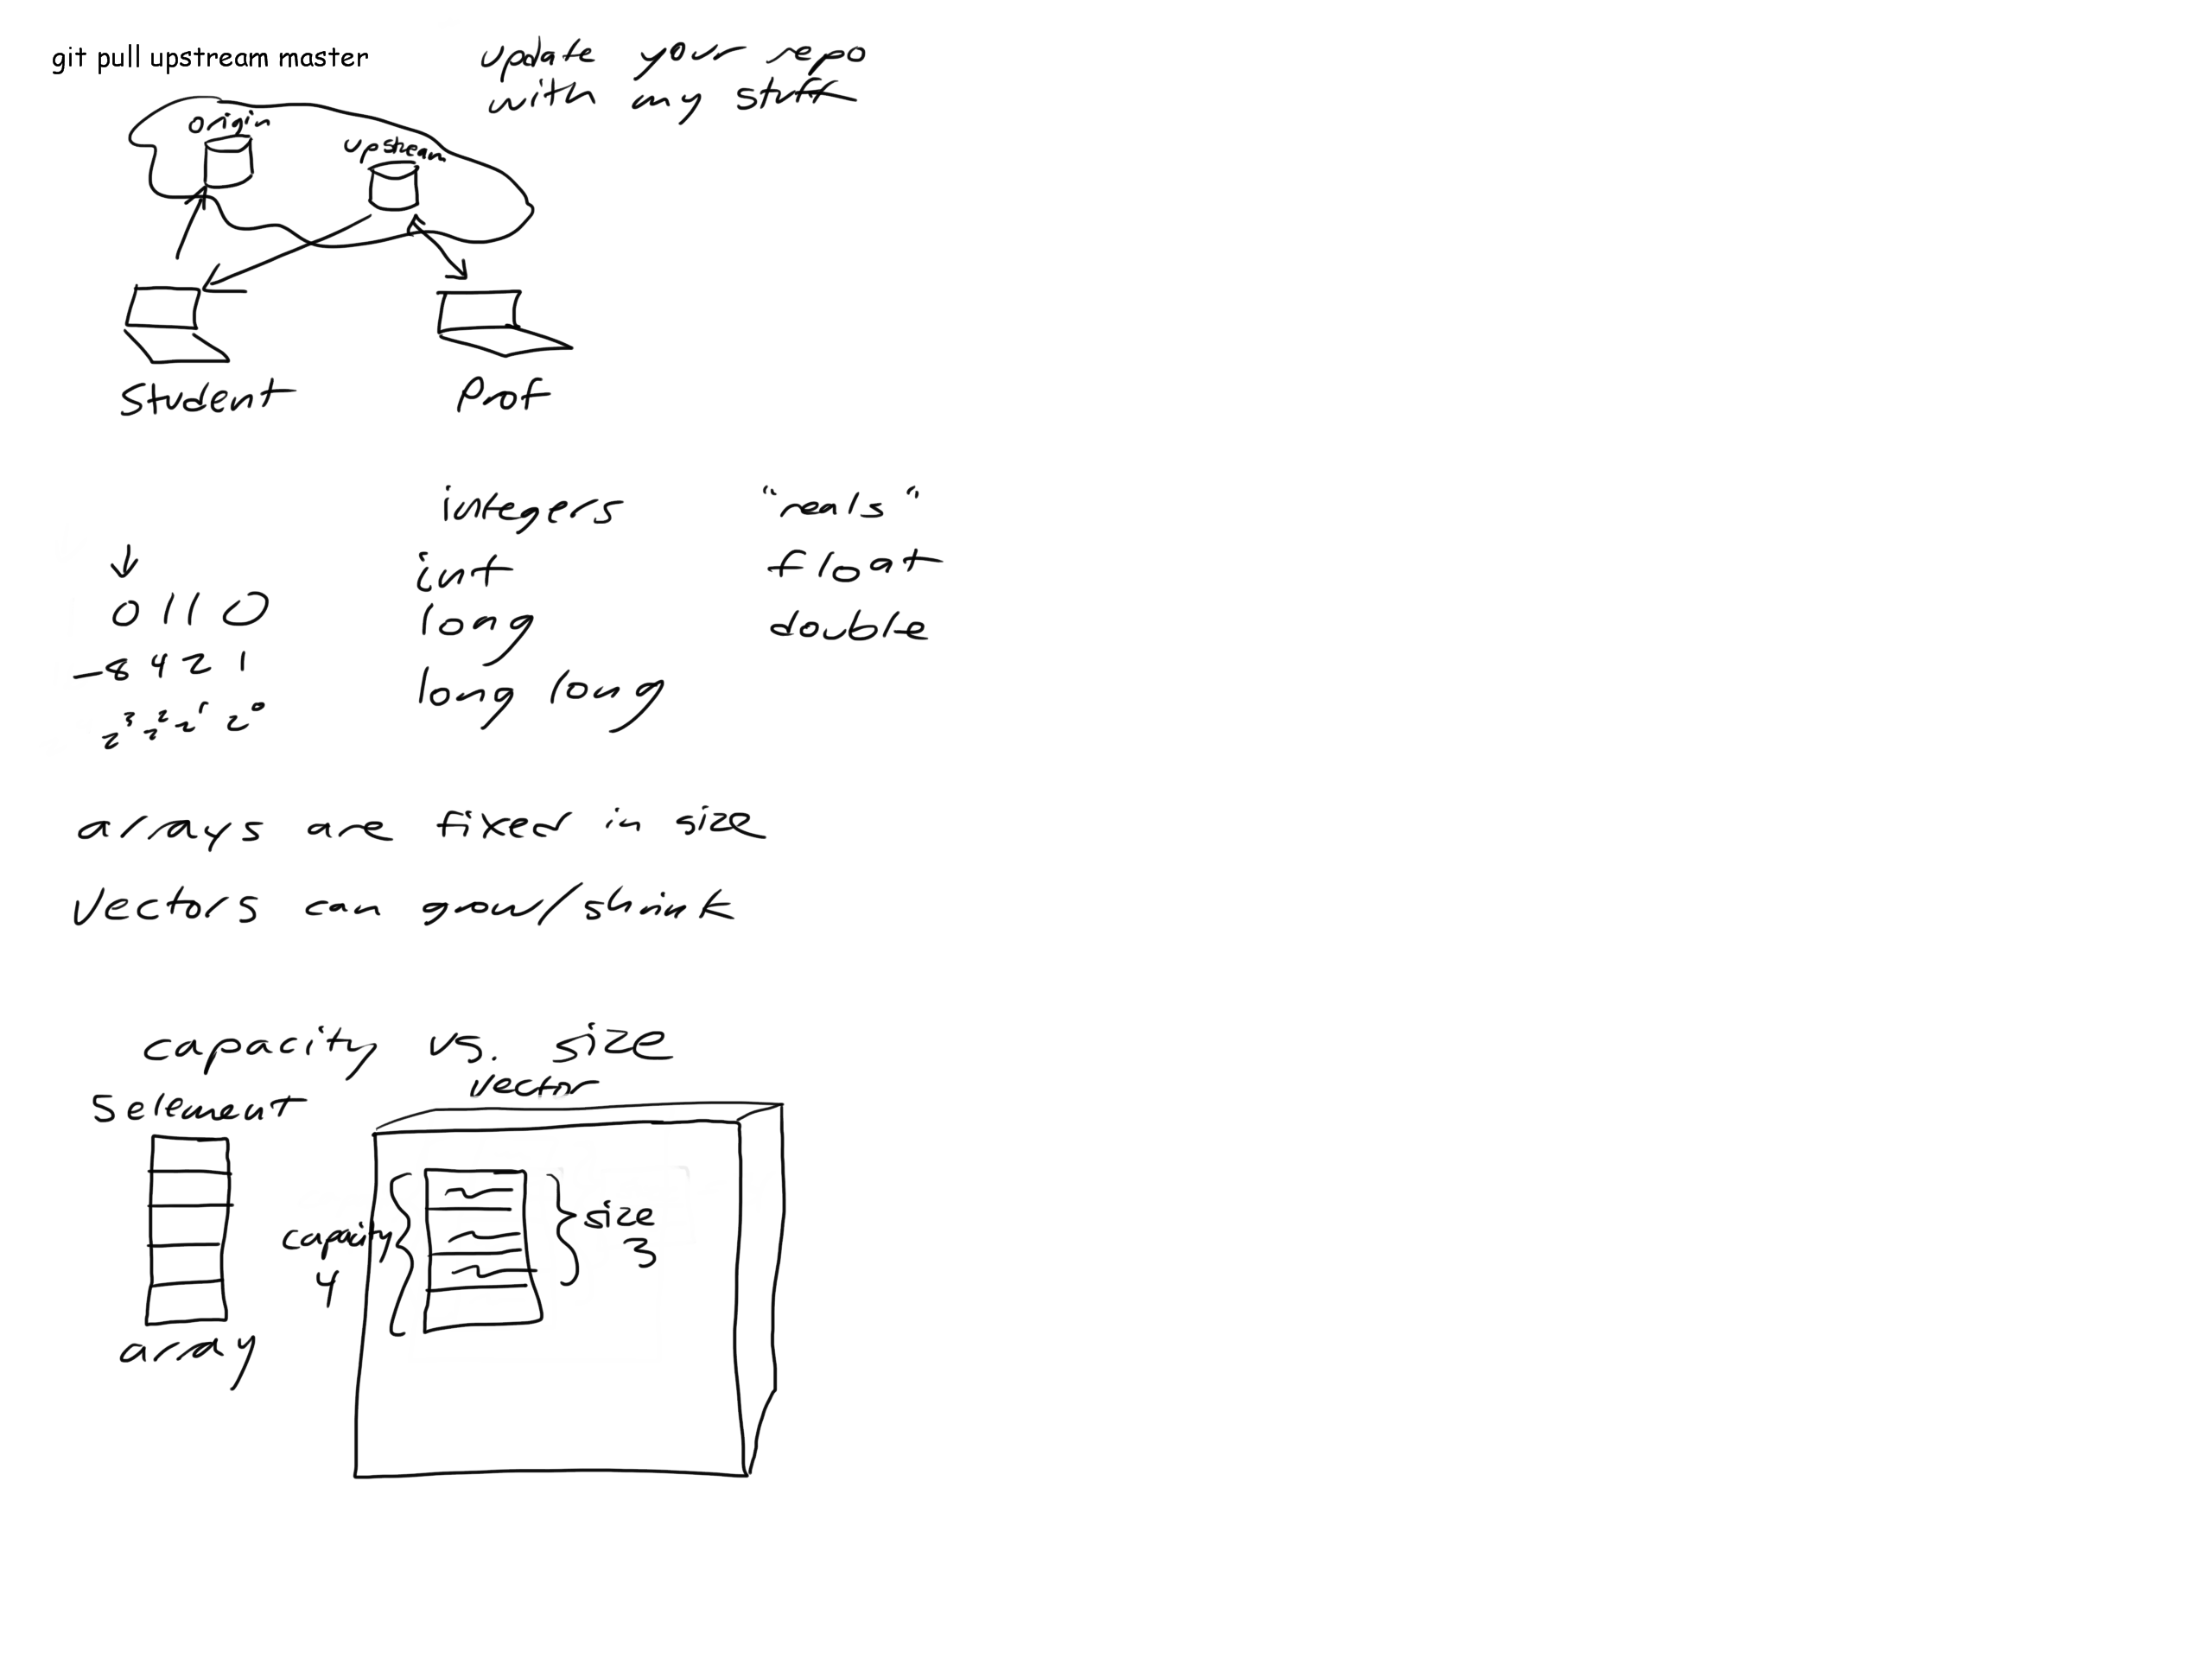 git pull upstream master
update your repo
with my stuff
origin
upstream
Student
Prof
integers "reals"
int float
long double
long long
0110
-8 4 2 1
2³ 2² 2¹ 2⁰
arrays are fixed in size
Vectors can grow/shrink
capacity vs. size
5 element
array
vector
capacity
4
size
3